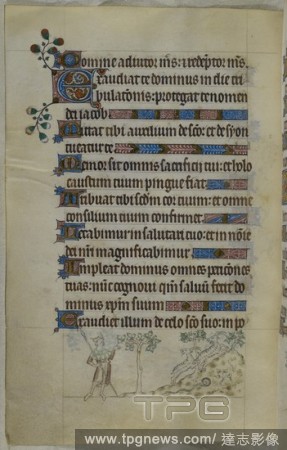 Domine adiutor m̅s: ⁊ redēptor m̅s.
Exaudiat te dominus in die tri
bulac̅onis: protegat te nomen
dei iacob
Mittat tibi auxilium de sc̅o: et de syon
tueatur te
Memor sit omnis sacrificij tui: et holo
caustum tuum pingue fiat
Tribuat tibi sc̅dm cor tuum: et omne
consilium tuum confirmet
Letabimur in salutari tuo: et in no̅ie
dei n̅ri magnificabimur
Impleat dominus omnes petic̅ones
tuas: nunc cognoui qm̅ saluū fecit do
minus xp̅m suum
Exaudiet illum de celo sc̅o suo: in po
TPG
www.tpgnews.com / 達志影像